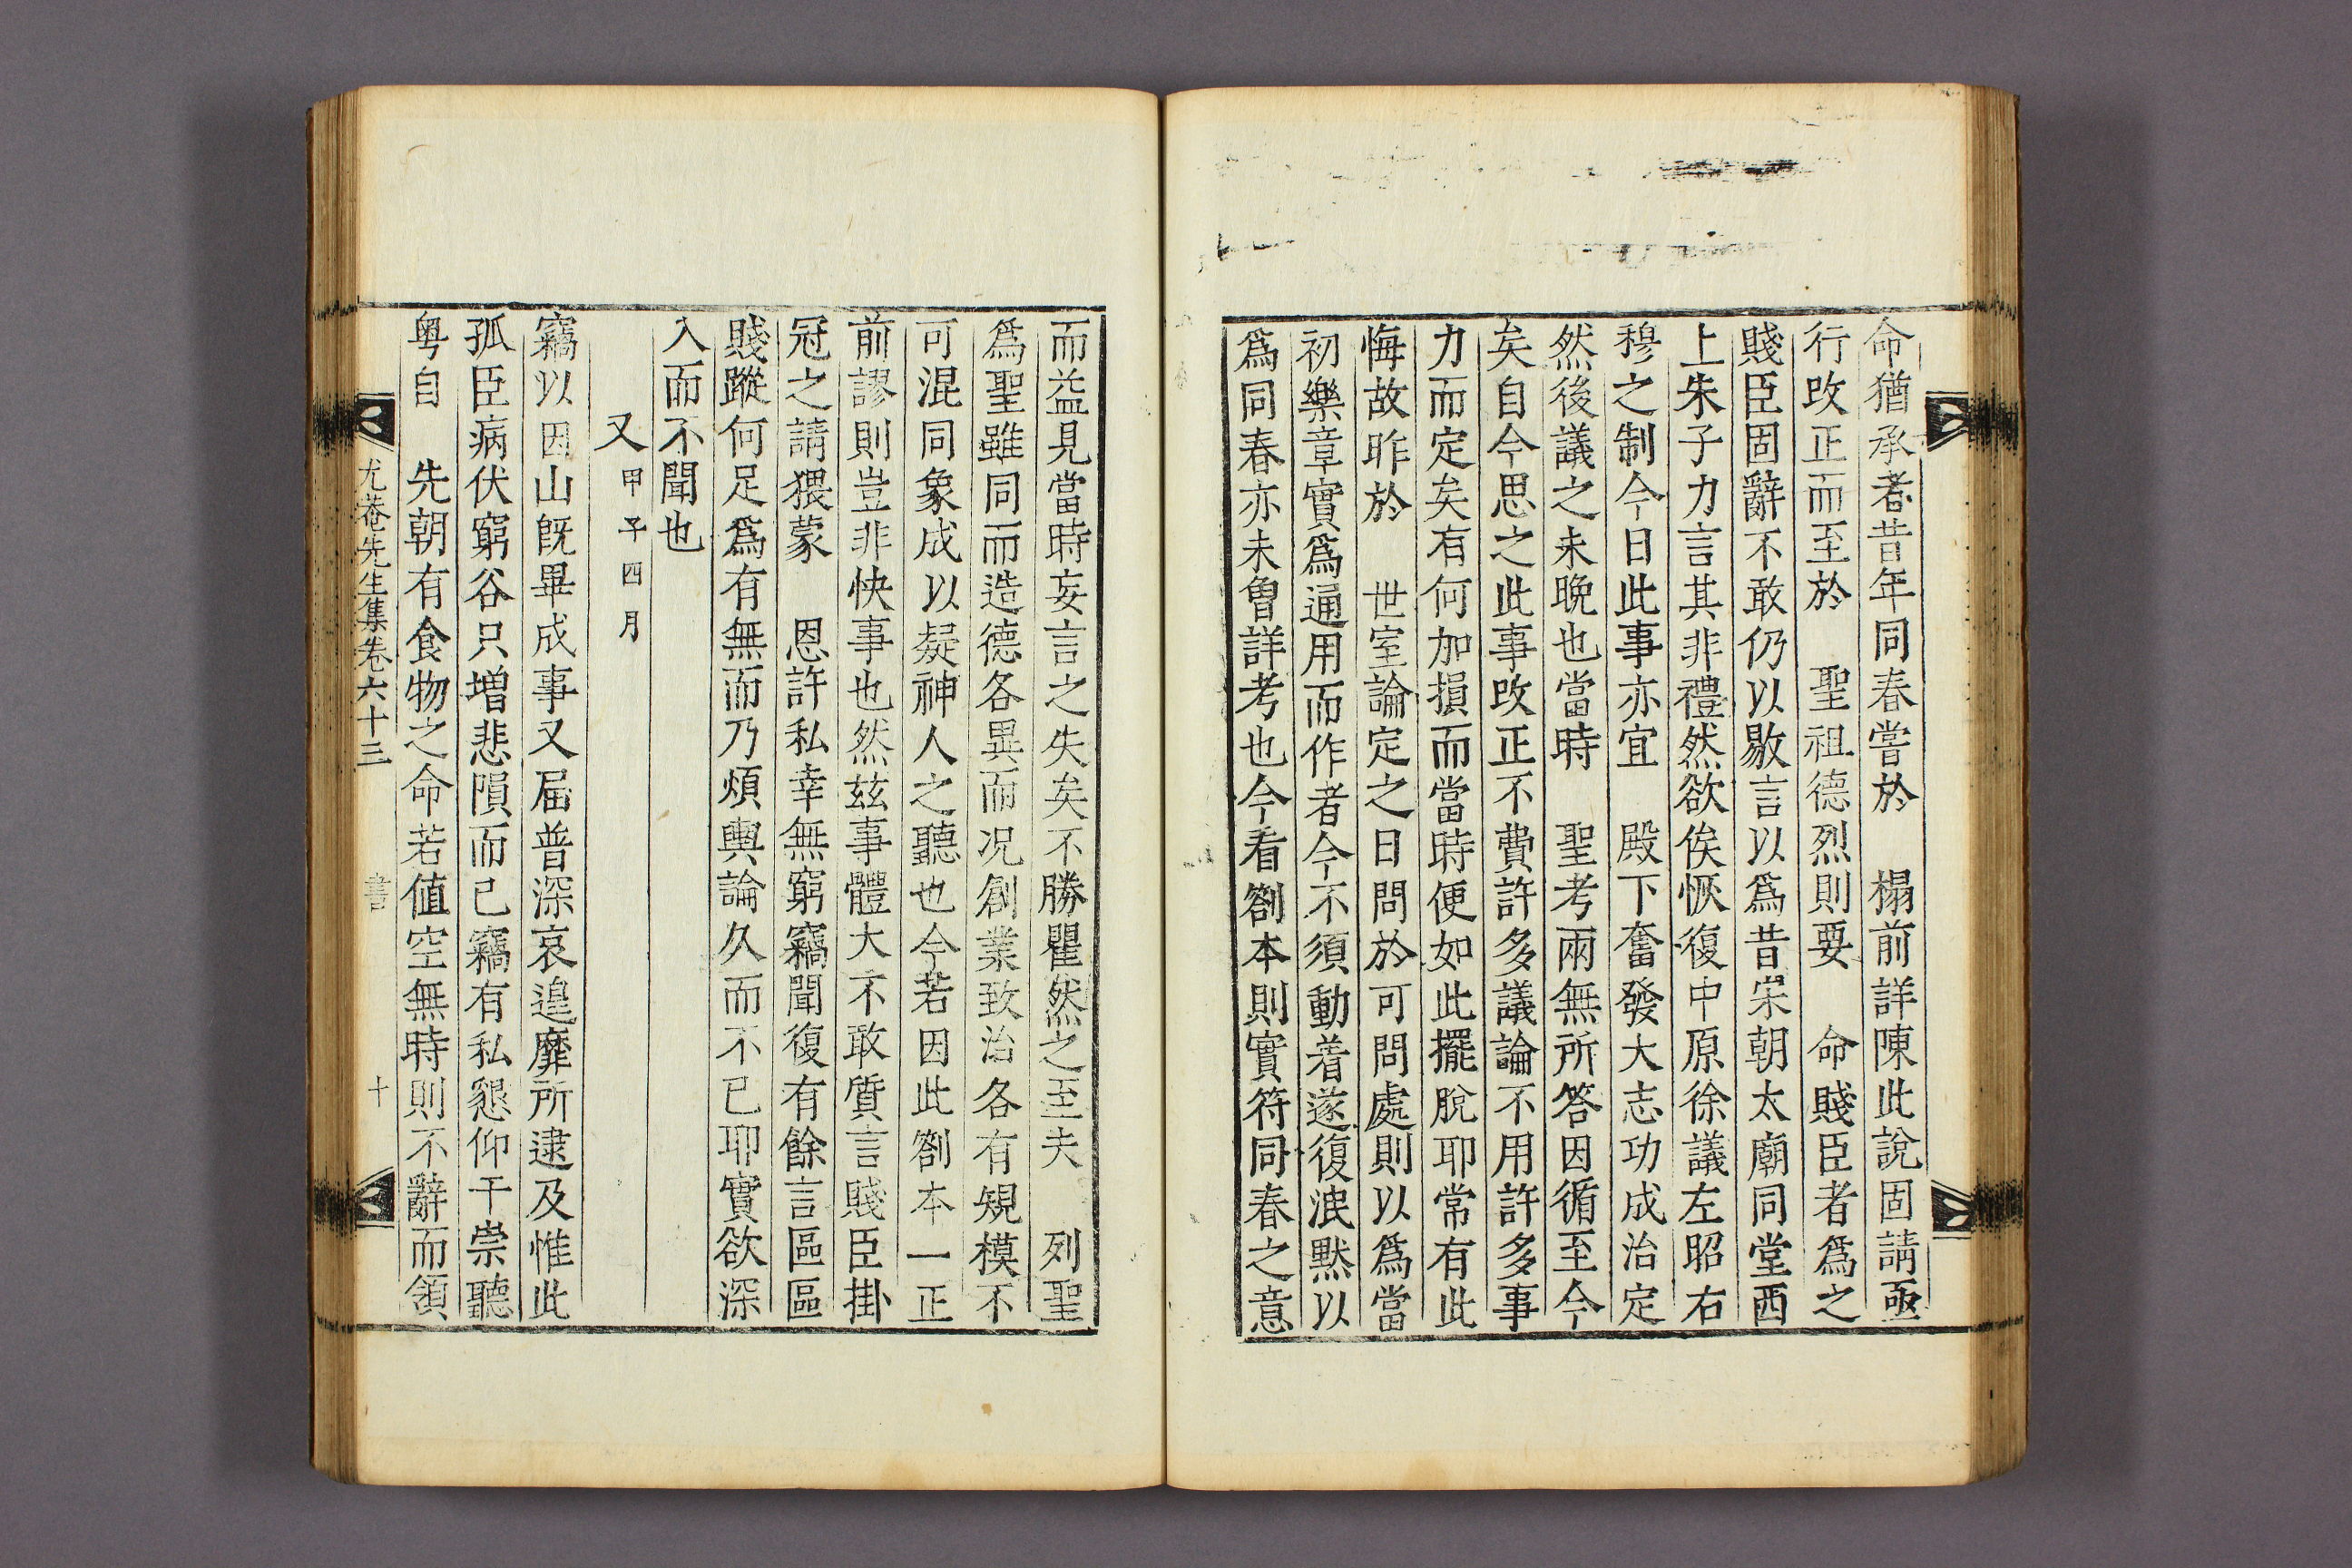 命猶承者昔年同春嘗於　榻前詳陳此說固請亟
行改正而至於　聖祖德烈則要　命賤臣者爲之
賤臣固辭不敢仍以敭言以爲昔宋朝太廟同堂西
上朱子力言其非禮然欲俟恢復中原徐議左昭右
穆之制今日此事亦宜　殿下奮發大志功成治定
然後議之未晩也當時　聖考兩無所答因循至今
矣自今思之此事改正不費許多議論不用許多事
力而定矣有何加損而當時便如此擺脫耶常有此
悔故昨於　世室論定之日問於可問處則以爲當
初樂章實爲通用而作者今不須動着遂復泯默以
爲同春亦未曾詳考也今看劄本則實符同春之意
而益見當時妄言之失矣不勝瞿然之至夫　列聖
爲聖雖同而造德各異而况創業致治各有規模不
可混同象成以凝神人之聽也今若因此劄本一正
前謬則豈非快事也然玆事體大不敢質言賤臣掛
冠之請猥蒙　恩許私幸無窮竊聞復有餘言區區
賤蹤何足爲有無而乃煩輿論久而不已耶實欲深
入而不聞也
又甲子四月
竊以因山旣畢成事又届普深哀遑靡所逮及惟此
孤臣病伏窮谷只增悲隕而已竊有私懇仰干崇聽
粤自　先朝有食物之命若値空無時則不辭而領
尤菴先生集卷六十三　書　十